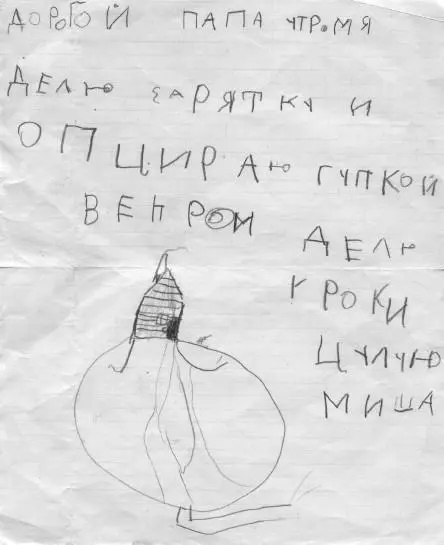 ДОРОГОЙ ПАПА УТРОМЯ
ДЕЛЮ ЗАРЯТКУ И
ОПЦИРАЮ ГУПКОЙ
ВЕЧРОМ ДЕЛЮ
УРОКИ
ЦУЛУЮ
МИША